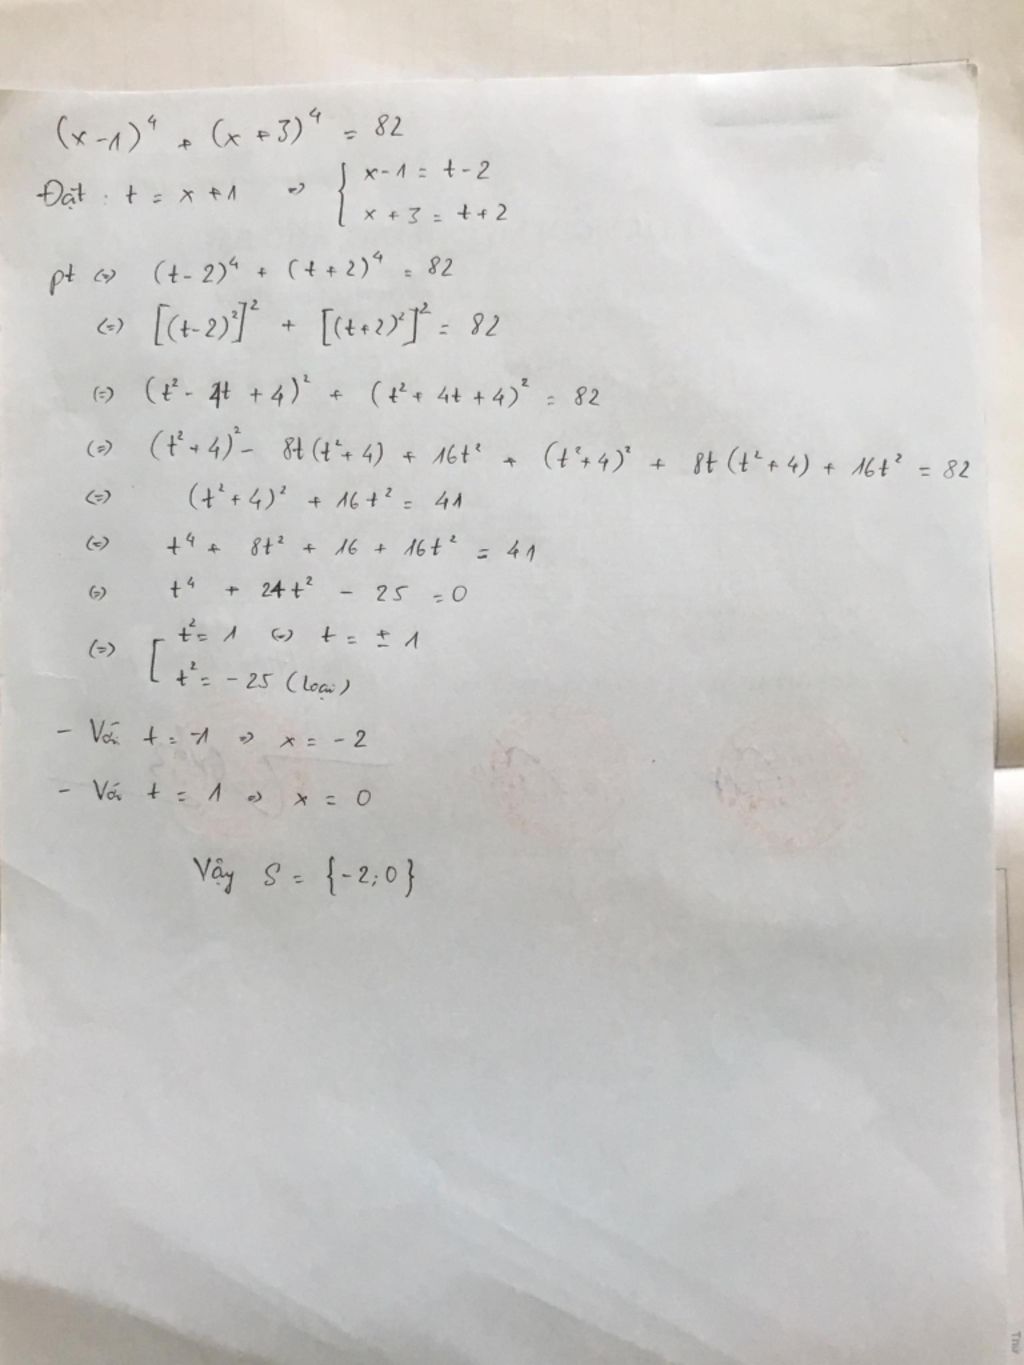 (x-1)⁴ + (x+3)⁴ = 82
Đặt : t = x+1 => { x-1 = t-2
x+3 = t+2
pt <=> (t-2)⁴ + (t+2)⁴ = 82
<=> [(t-2)²]² + [(t+2)²]² = 82
<=> (t² - 4t + 4)² + (t² + 4t + 4)² = 82
<=> (t²+4)² - 8t(t²+4) + 16t² + (t²+4)² + 8t(t²+4) + 16t² = 82
<=> (t²+4)² + 16t² = 41
<=> t⁴ + 8t² + 16 + 16t² = 41
<=> t⁴ + 24t² - 25 = 0
<=> [ t² = 1 <=> t = ±1
t² = -25 (loại)
- Với t = -1 => x = -2
- Với t = 1 => x = 0
Vậy S = {-2;0}